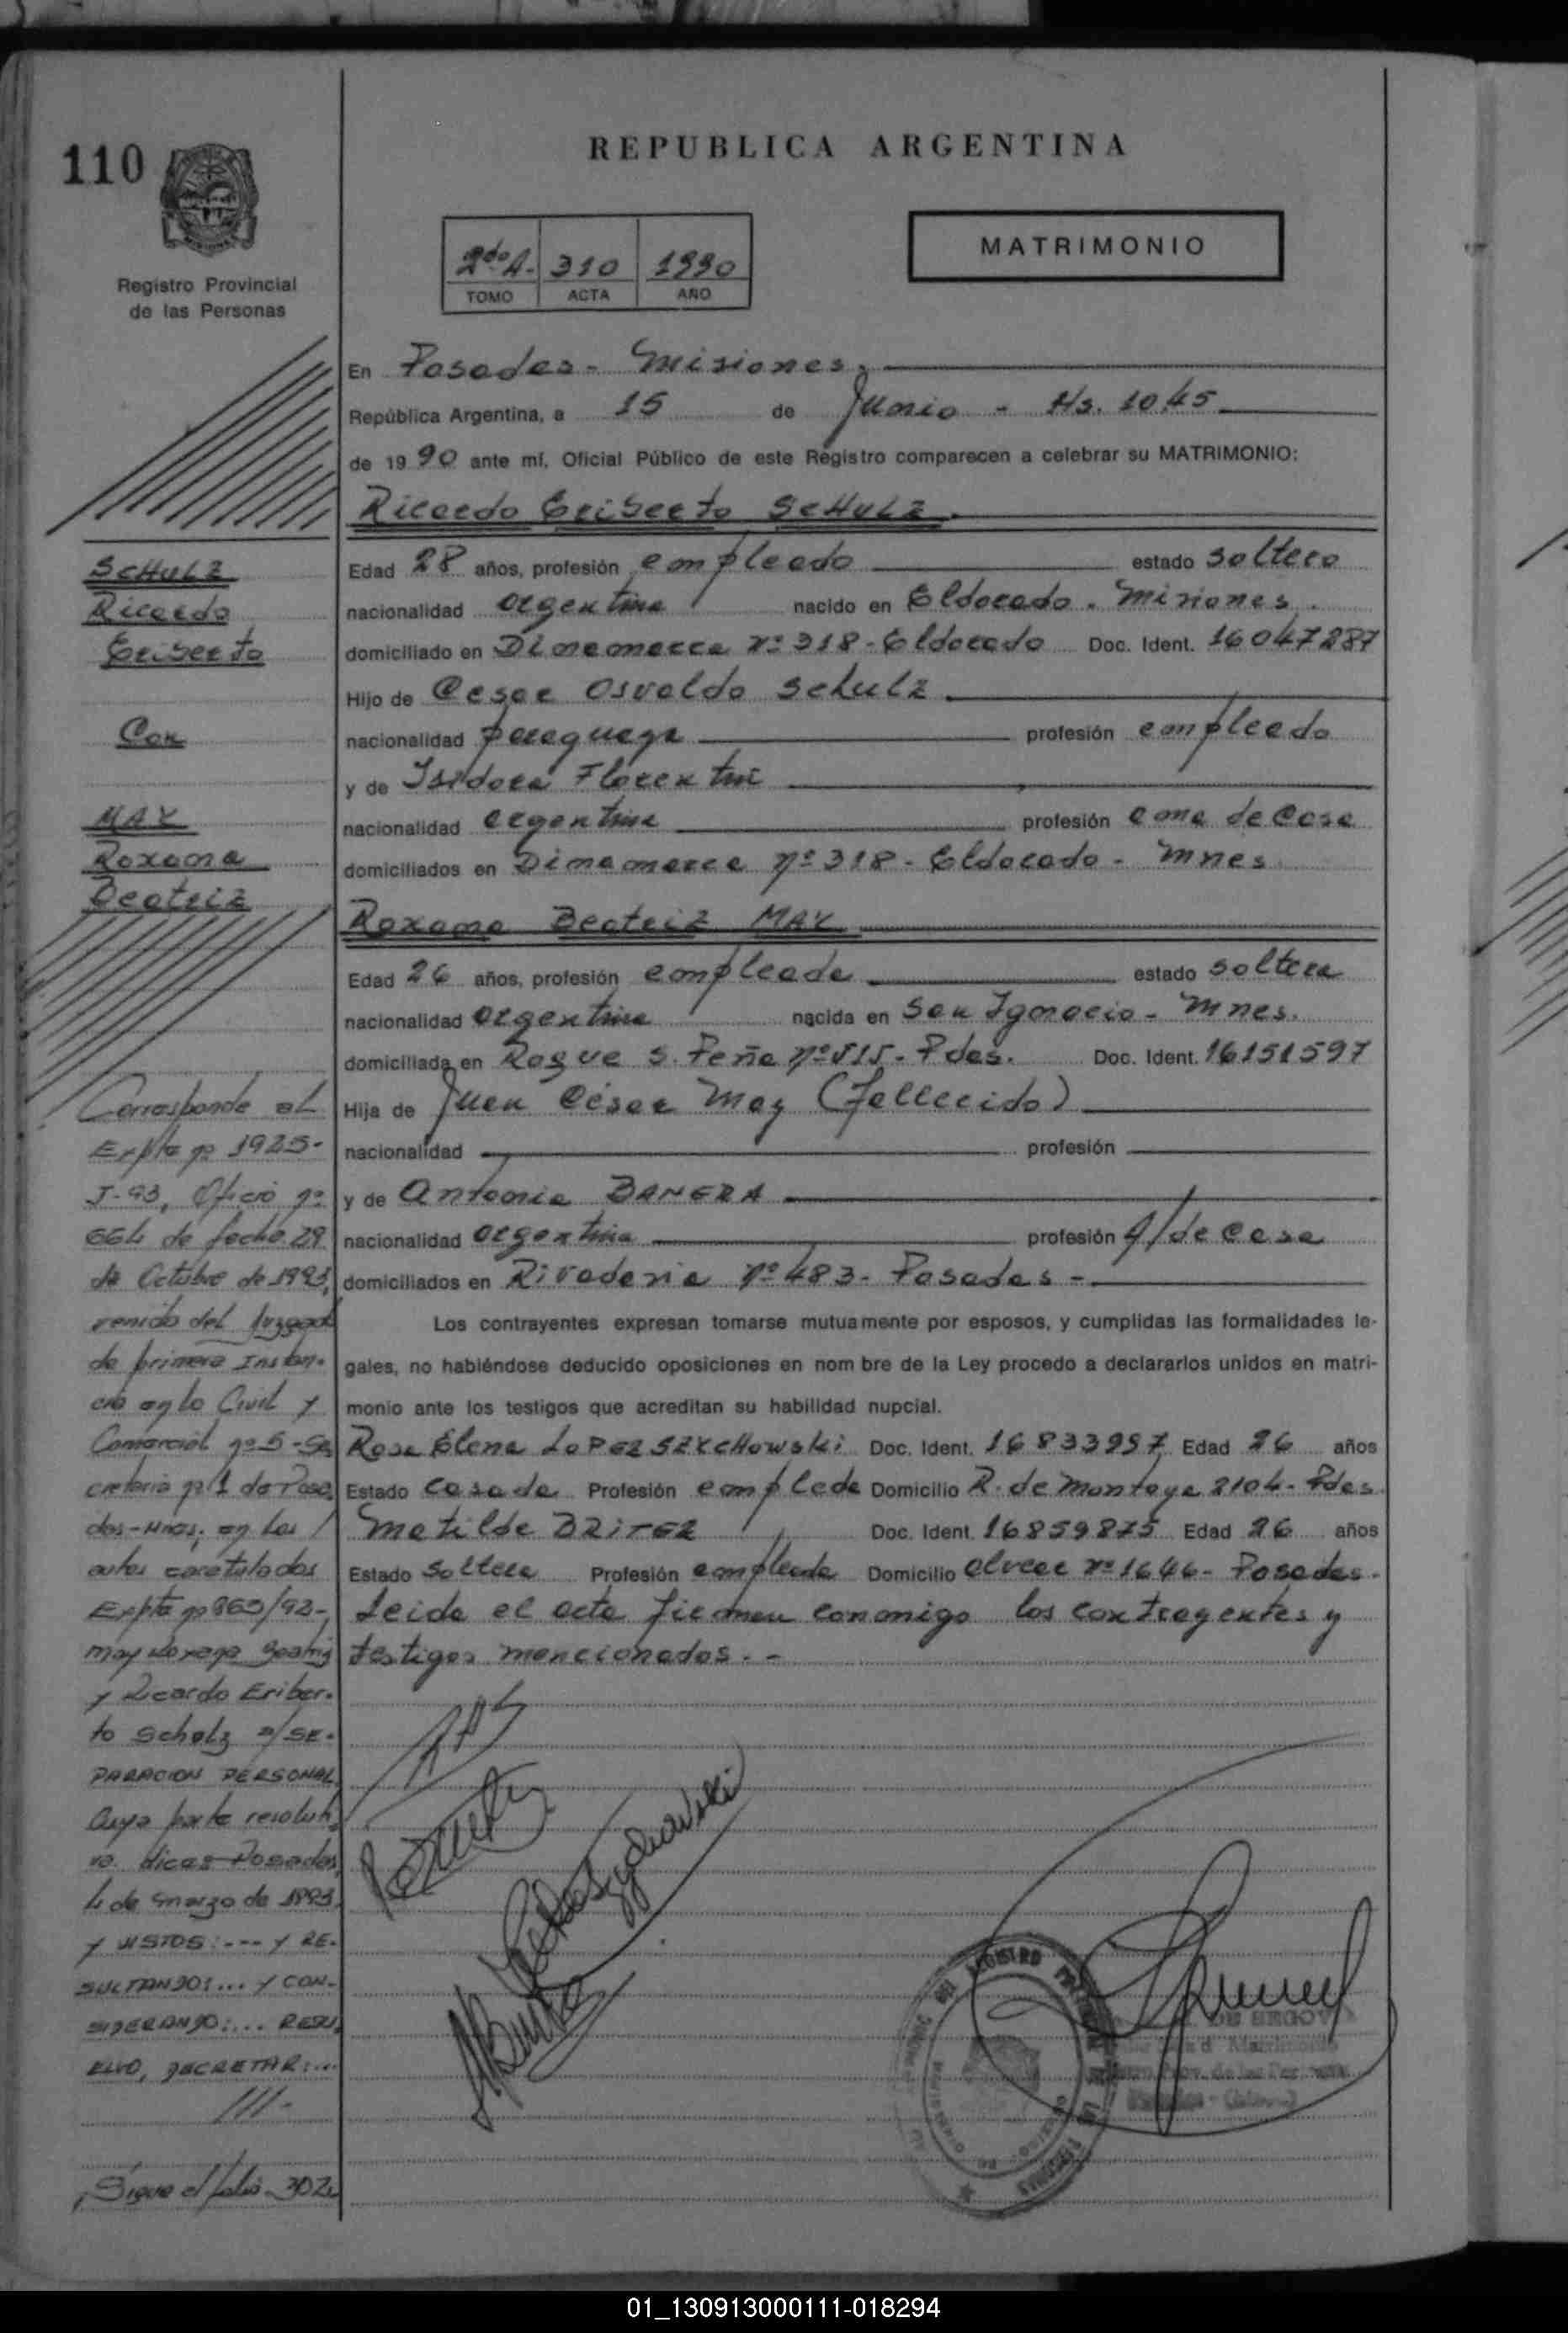 110
Registro Provincial
de las Personas
REPUBLICA ARGENTINA
2do A. 310 1990
TOMO ACTA AÑO
MATRIMONIO
En Posadas - Misiones,
República Argentina, a 15 de Junio - Hs. 10,45
de 1990 ante mí, Oficial Público de este Registro comparecen a celebrar su MATRIMONIO:
Ricardo Eriberto SCHULZ.
Edad 28 años, profesión empleado estado soltero
nacionalidad argentina nacido en Eldorado - Misiones.
domiciliado en Dinamarca nº 318 - Eldorado Doc. Ident. 16047287
Hijo de Cesar Osvaldo Schulz
nacionalidad paraguaya profesión empleado
y de Isidora Florentin
nacionalidad argentina profesión ama de casa
domiciliados en Dinamarca nº 318 - Eldorado - Mnes
Roxana Beatriz MAY
Edad 26 años, profesión empleada estado soltera
nacionalidad argentina nacida en San Ignacio - Mnes.
domiciliada en Roque S. Peña nº 515 - Pdas. Doc. Ident. 16151597
Hija de Juan César May (Fallecido)
nacionalidad profesión
y de Antonia BANERA
nacionalidad argentina profesión A/de casa
domiciliados en Rivadavia nº 483 - Posadas -
Los contrayentes expresan tomarse mutuamente por esposos, y cumplidas las formalidades le-
gales, no habiéndose deducido oposiciones en nom bre de la Ley procedo a declararlos unidos en matri-
monio ante los testigos que acreditan su habilidad nupcial.
Rosa Elena LOPEZ SZYCHOWSKI Doc. Ident. 16833997 Edad 26 años
Estado casada Profesión empleda Domicilio R. de Montoya 2104 - Pdas.
Matilde BRITEZ Doc. Ident. 16859875 Edad 26 años
Estado soltera Profesión empleada Domicilio Alvear nº 1646 - Posadas -
Leida el acta firman conmigo los contrayentes y
testigos mencionados. -
SCHULZ
Ricardo
Eriberto
Con
MAY
Roxana
Beatriz
Corresponde al
Expte nº 1925-
J-93, Oficio nº
664 de fecha 29
de Octubre de 1993,
venido del Juzgado
de primera Instan-
cia en lo Civil y
Comercial nº 5 - Se
cretaria nº 1 de Posa
das - Mnes, en los
autos caratulados
Expte nº 863/92 -,
May Roxana Beatriz
y Ricardo Eriber-
to Scholz s/ SE-
PARACION PERSONAL
Cuya parte resoluti
va dice: Posadas,
4 de Marzo de 1993.
Y VISTOS: --- Y RE-
SULTANDO: ... Y CON-
SIDERANDO: ... RESU
ELVO, DECRETAR: ...
///-
Sigue al folio - 302
01_130913000111-018294